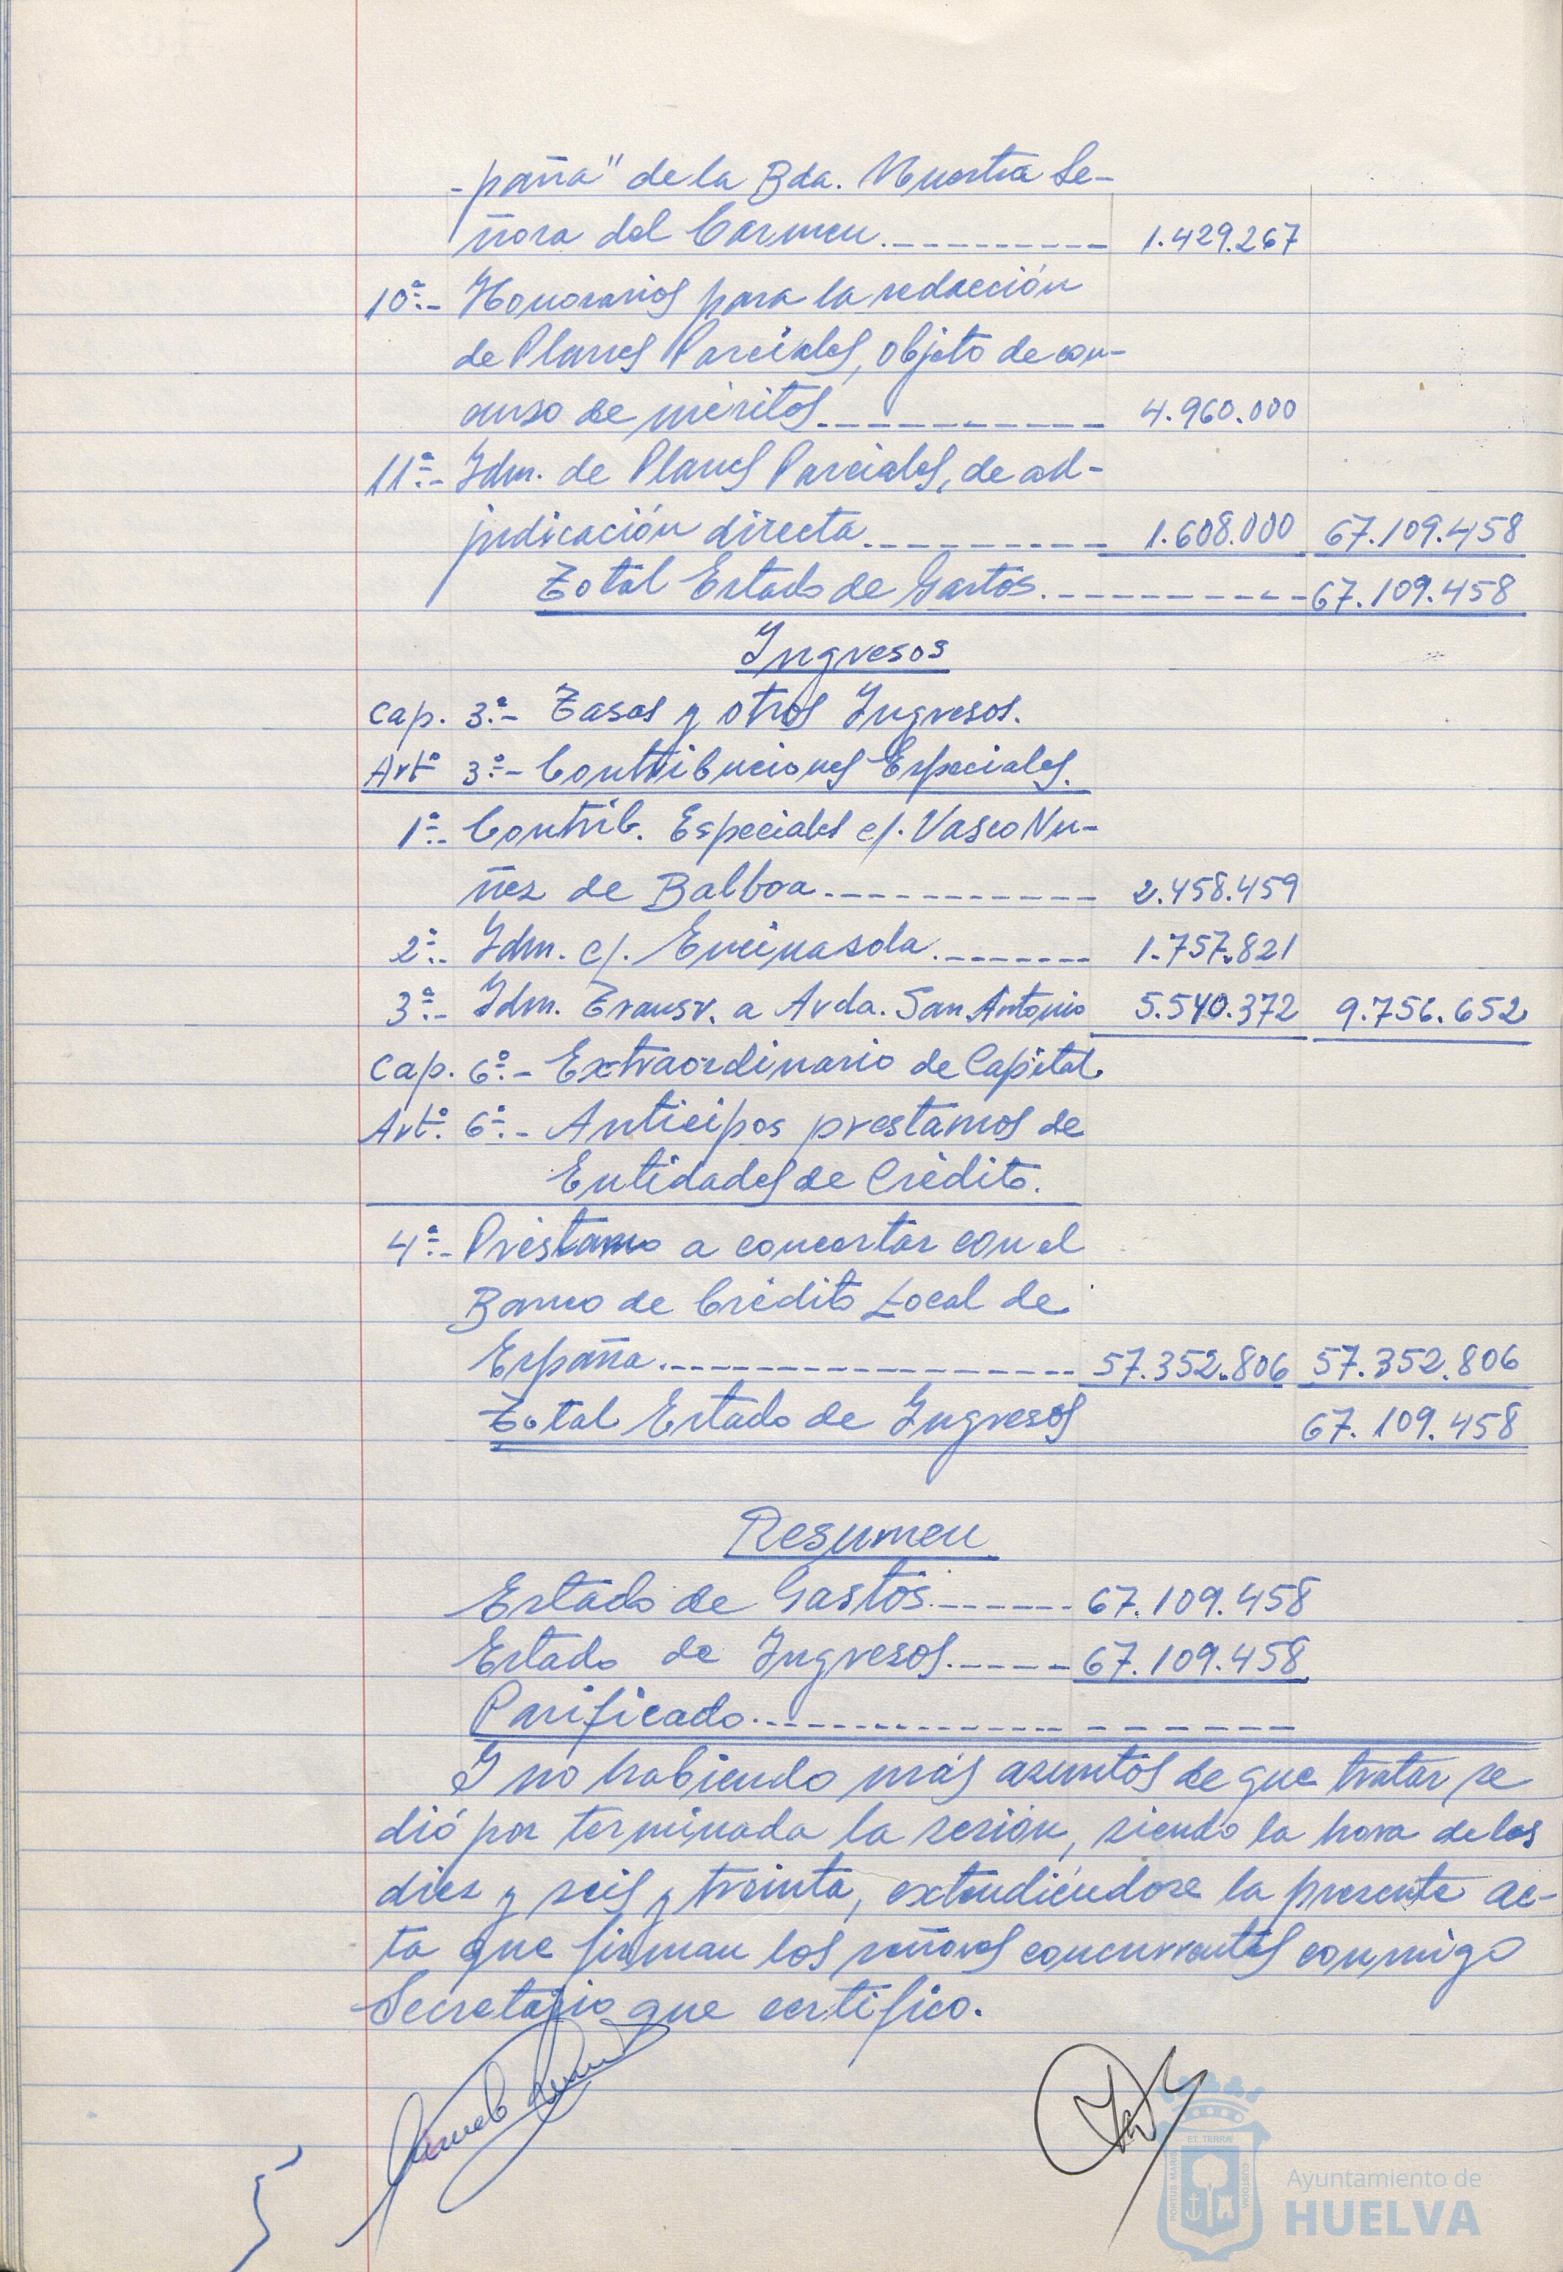 -paña" de la Bda. Nuestra Se-
ñora del Carmen.---------- 1.429.267
10ª.- Honorarios para la redacción
de Planes Parciales, objeto de con-
curso de méritos.---------- 4.960.000
11ª.- Idm. de Planes Parciales, de ad-
judicación directa.--------- 1.608.000 67.109.458
Total Estado de Gastos.---------- 67.109.458
Ingresos
Cap. 3º.- Tasas y otros Ingresos.
Artº 3º.- Contribuciones Especiales.
1ª.- Contrib. Especiales c/. Vasco Nu-
ñez de Balboa.----------- 2.458.459
2ª.- Idm. c/. Encinasola.------- 1.757.821
3ª.- Idm. Transv. a Avda. San Antonio 5.540.372 9.756.652
Cap. 6º.- Extraordinario de Capital.
Artº. 6º.- Anticipos prestamos de
Entidades de Crédito.
4ª.- Préstamo a concertar con el
Banco de Crédito Local de
España.----------------- 57.352.806 57.352.806
Total Estado de Ingresos 67.109.458
Resumen
Estado de Gastos.------ 67.109.458
Estado de Ingresos.----- 67.109.458
Parificado.---------------- ------
Y no habiendo más asuntos de que tratar se
dió por terminada la sesión, siendo la hora de las
diez y seis y treinta, extendiéndose la presente ac-
ta que firman los señores concurrentes conmigo
Secretario que certifico.
ET TERRAE
PORTUS MARIS
CUSTODIA
Ayuntamiento de
HUELVA